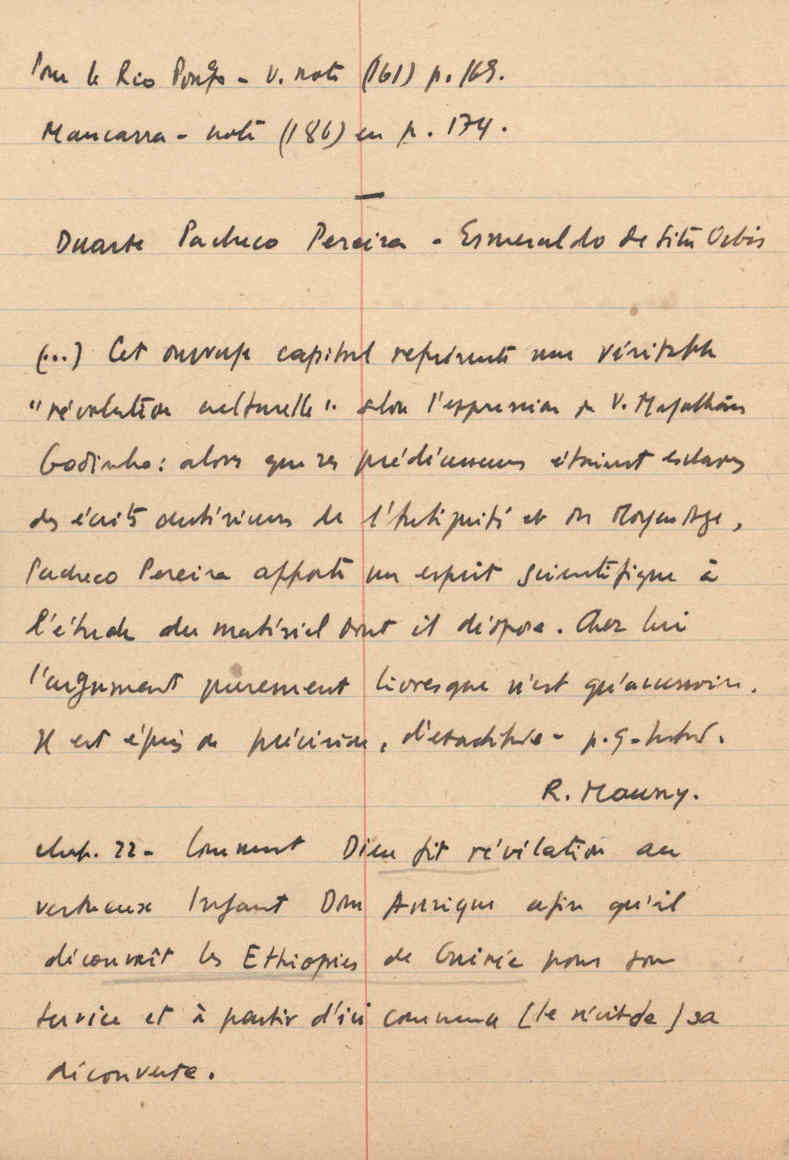 Pour le Rio Pongo - v. note (161) p. 169.
Mancarra - note (186) en p. 174.
Duarte Pacheco Pereira - Esmeraldo de Situ Orbis
(...) Cet ouvrage capital représente une véritable
"révolution culturelle". selon l'expression de V. Magalhães
Godinho: alors que ses prédécesseurs étaient esclaves
des écrits antérieurs de l'Antiquité et du Moyen Age,
Pacheco Pereira apporte un esprit scientifique à
l'étude du matériel dont il dispose. Chez lui
l'argument purement livresque n'est qu'accessoire.
Il est épris de précision, d'exactitude - p. 9 - Introd.
R. Mauny.
chap. 22 - Comment Dieu fit révélation au
vertueux Infant Dom Anrique afin qu'il
découvrît les Ethiopies de Guinée pour son
service et à partir d'ici commence [le récit de] sa
découverte.